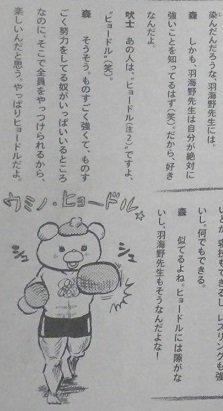 染んだんだろうな、羽海野先生には。
しかも、羽海野先生は自分が絶対に
強いことを知ってるはず(笑)。だから、好き
なんだよ
あの人は、"ヒョードル(注2)"ですよ、
"ヒョードル(笑)。
そうそう。ものすごく強くて、ものす
ごく努力をしてる奴がいっぱいいるところ
なのに、そこで全員をやっつけられるから、
楽しいんだと思う。やっぱりヒョードルだよ。
もできる。レスリングも強
いし、何でもできる。
似てるよね。ヒョードルには隙がな
いし、羽海野先生もそうなんだよな!
ウミノ・ヒョードル☆
シュ
シュ